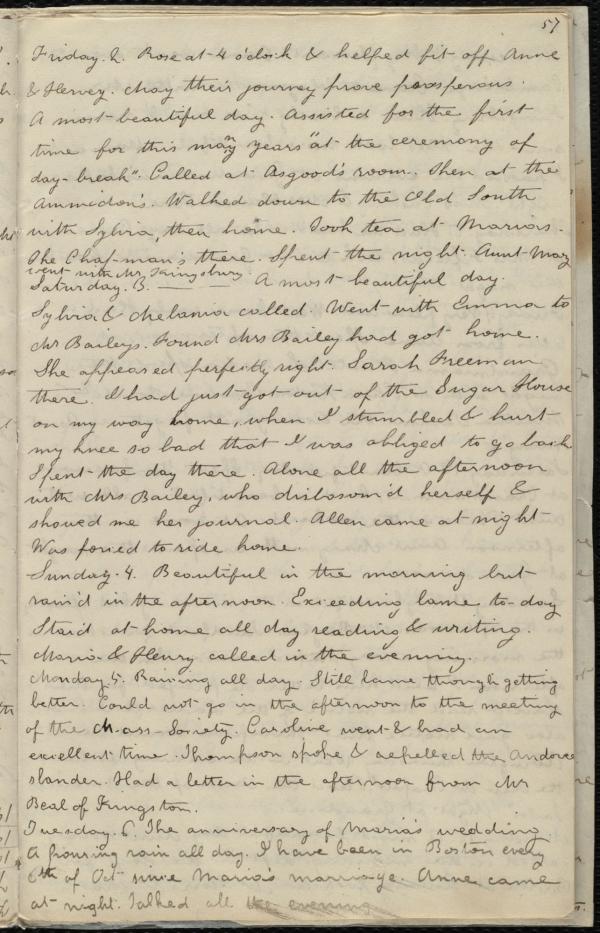 57
Friday. 2. Rose at 4 o'clock & helped fit off Anne
& Henry. May their journey prove prosperous.
A most beautiful day. Assisted for the first
time for this many years "at the ceremony of
day-break". Called at Osgood's room. Then at the
Ammidon's. Walked down to the Old South
with Sylvia, then home. Took tea at Marias.
The Chapman's there. Spent the night. Aunt Mary
went with Mr Kingsbury.
Saturday. 3. A most beautiful day.
Sylvia & Melania called. Went with Emma to
Mr Baileys. Found Mrs Bailey had got home.
She appeared perfectly right. Sarah Freeman
there. I had just got out of the Sugar House
on my way home, when I stumbled & hurt
my knee so bad that I was obliged to go back
Spent the day there. Alone all the afternoon
with Mrs Bailey, who disbosom'd herself &
showed me her journal. Allen came at night
Was forced to ride home.
Sunday. 4. Beautiful in the morning but
rain'd in the afternoon. Exceeding lame to-day
Staid at home all day reading & writing.
Maria & Henry called in the evening.
Monday. 5. Raining all day. Still lame though getting
better. Could not go in the afternoon to the meeting
of the Mass. Society. Caroline went & had an
excellent time. Thompson spoke & repelled the Andover
slander. Had a letter in the afternoon from Mr
Beal of Kingston.
Tuesday. 6. The anniversary of Maria's wedding.
A pouring rain all day. I have been in Boston every
6th of Oct since Maria's marriage. Anne came
at night. Talked all the evening